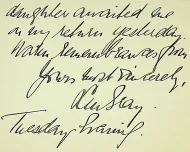 daughter awaited me
on my return yesterday.
Warm remembrances from
Yours most sincerely,
Tuesday Evening.